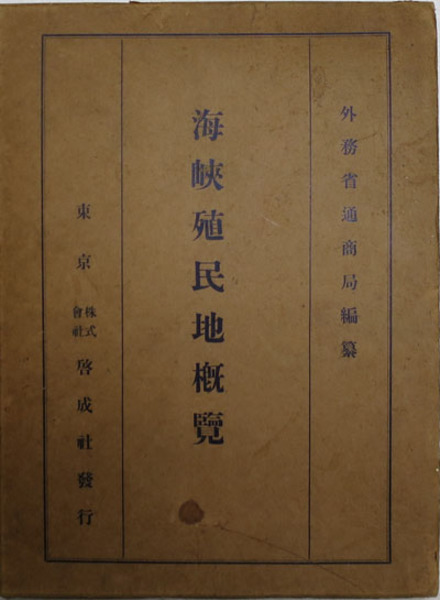 外務省通商局編纂
海峽殖民地槪覽
東京株式會社啓成社發行